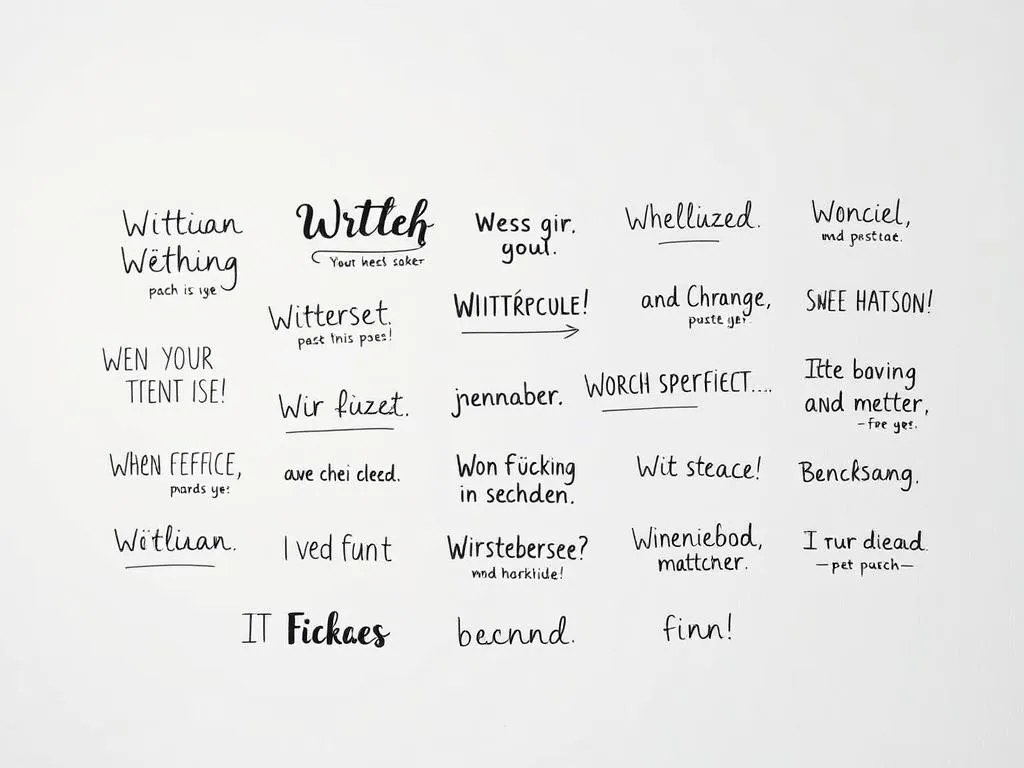 Wittiuan
Wëthing
pach is iye
Wrtleh
Your hect soker
Wess gir.
goul.
Whelliuzed.
Wonciel,
md pastiat.
Witterset.
past this poes!
WIITŔPCULE!
and Chrange,
puste yer.
SNEE HATSON!
WEN YOUR
TTENT ISE!
Wir fuzet.
jnennaber.
WORCH SPERFIECT....
Itte boving
and metter,
-fre yer.
WHEN FEFFICE,
pards ye:
ave chei cleed.
Won fücking
in sechden.
Wit steace!
Bencksang.
Wötliuan.
I ved funt
Wirstebersee?
mnd horklide!
Wineniebod,
mattcner.
I rur diead.
—pet puech—
IT Fickaes
becnnd.
finn!